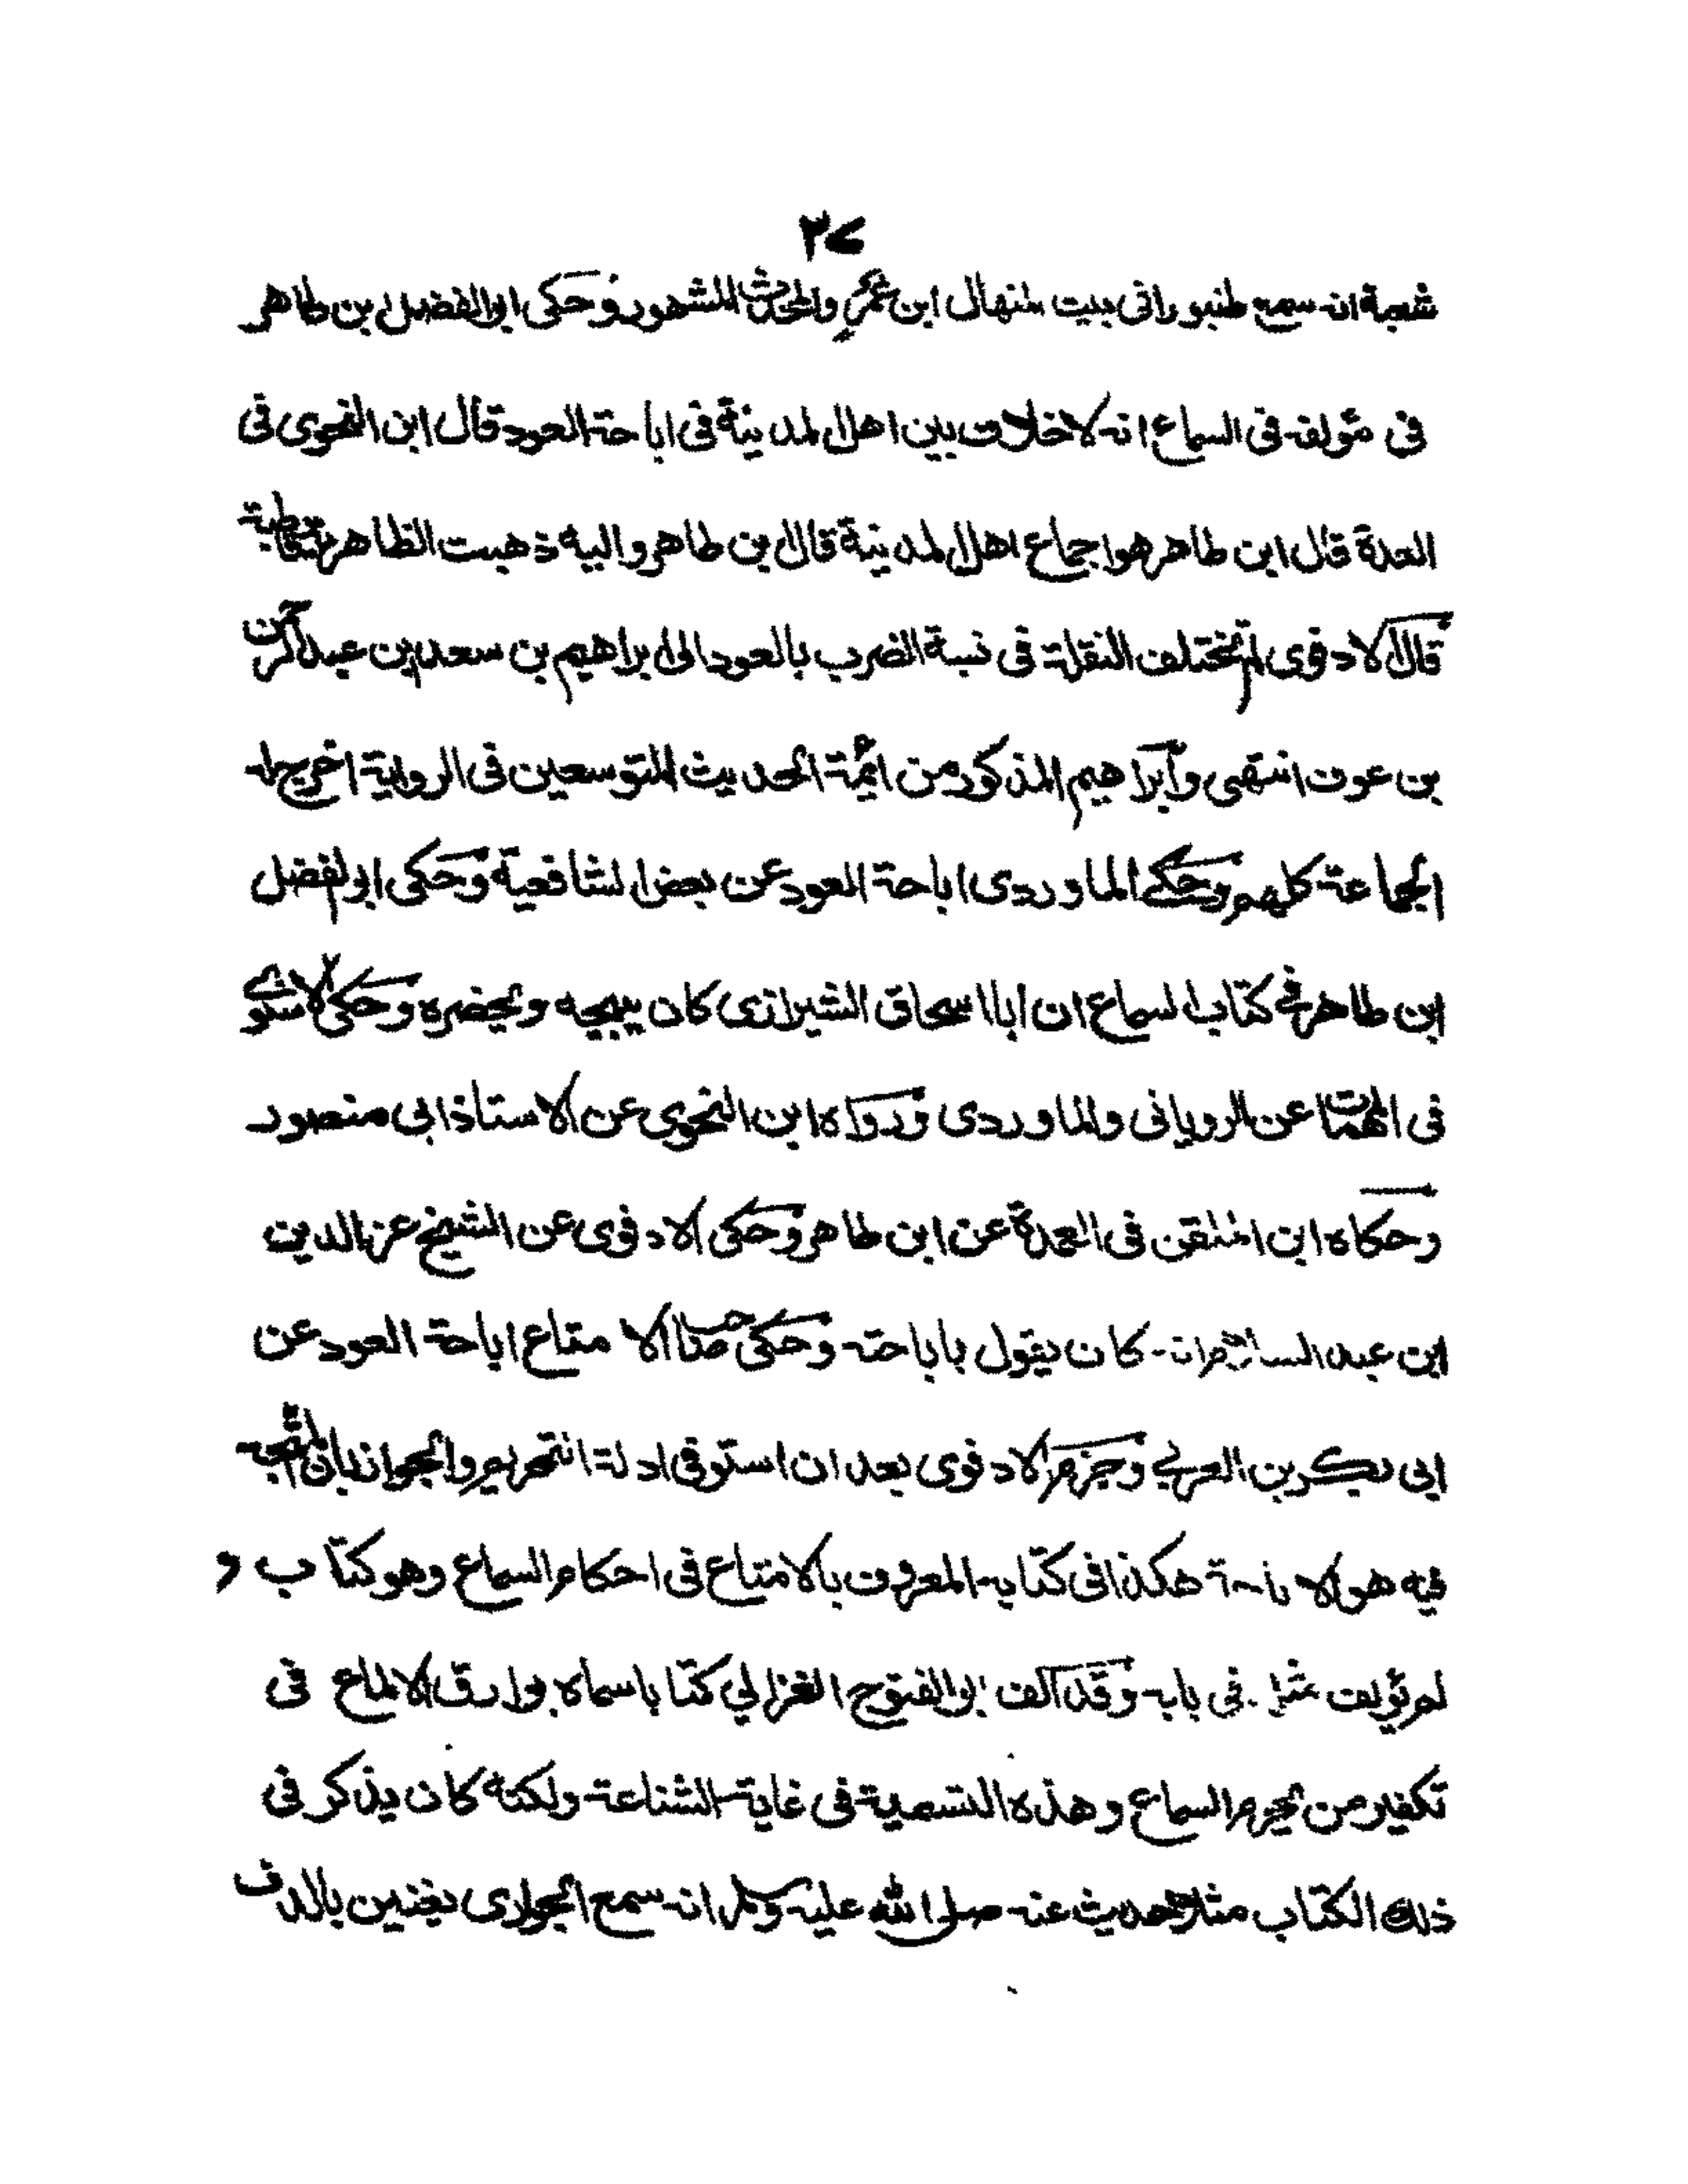 ٢٧
شعبة انه سمع طنبورا فى بيت المنهال ابن عمرو المحدث المشهور وحكى ابو الفضل بن طاهر
فى مؤلفه فى السماع انه لا خلاف بين اهل المدينة فى اباحة العود قال ابن النحوى فى
العمدة قال ابن طاهر هو اجماع اهل المدينة قال بن طاهر واليه ذهبت الظاهرية قاطبة
قال الادفوى لم تختلف النقلة فى نسبة الضرب بالعود الى ابراهيم بن سعد ابن عبد الرحمن
بن عوف انتهى وابراهيم المذكور من ائمة الحديث المتوسعين فى الرواية اخرج له
الجماعة كلهم وحكى الماوردى اباحة العود عن بعض الشافعية وحكى ابو الفضل
ابن طاهر فى كتاب السماع ان ابا اسحاق الشيرازى كان يبيحه ويحضره وحكى الاسنوى
فى المهمات عن الرويانى والماوردى ورواه ابن النحوى عن الاستاذ ابى منصور
وحكاه ابن الملقن فى العمدة عن ابن طاهر وحكى الادفوى عن الشيخ عز الدين
ابن عبد السلام انه كان يقول باباحته وحكى صاحب الامتاع اباحة العود عن
ابى بكر بن العربى وجزم الادفوى بعد ان استوفى ادلة التحريم والجواز بان المتجه
فيه هو الاباحة هكذا فى كتابه المعروف بالامتاع فى احكام السماع وهو كتاب و
لم يؤلف مثله فى بابه وقد الف ابو الفتوح الغزالي كتابا سماه بوارق الالماع فى
تكفير من يحرم السماع وهذه التسمية فى غاية الشناعة ولكنه كان يذكر فى
ذلك الكتاب مثلا حديث عنه صلى الله عليه وسلم انه سمع الجوارى يغنين بالدف